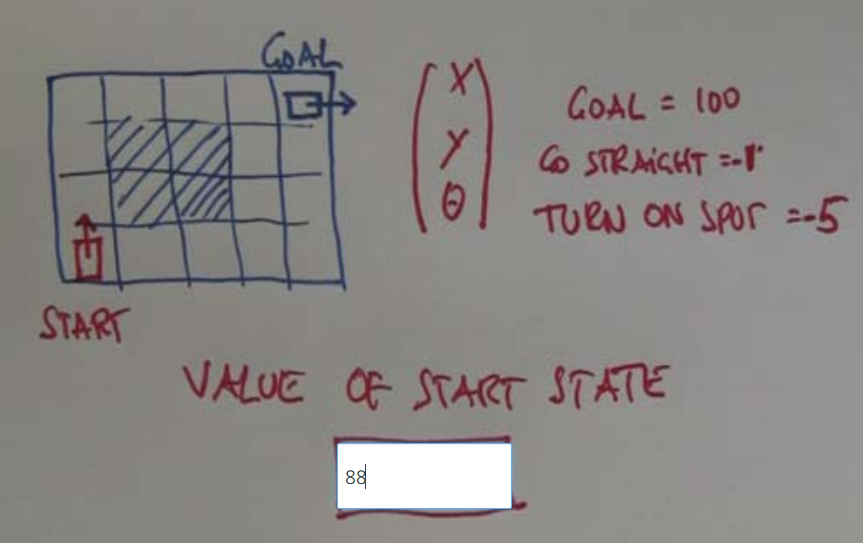 GOAL
X
Y
θ
GOAL = 100
GO STRAIGHT = -1
TURN ON SPOT = -5
START
VALUE OF START STATE
88